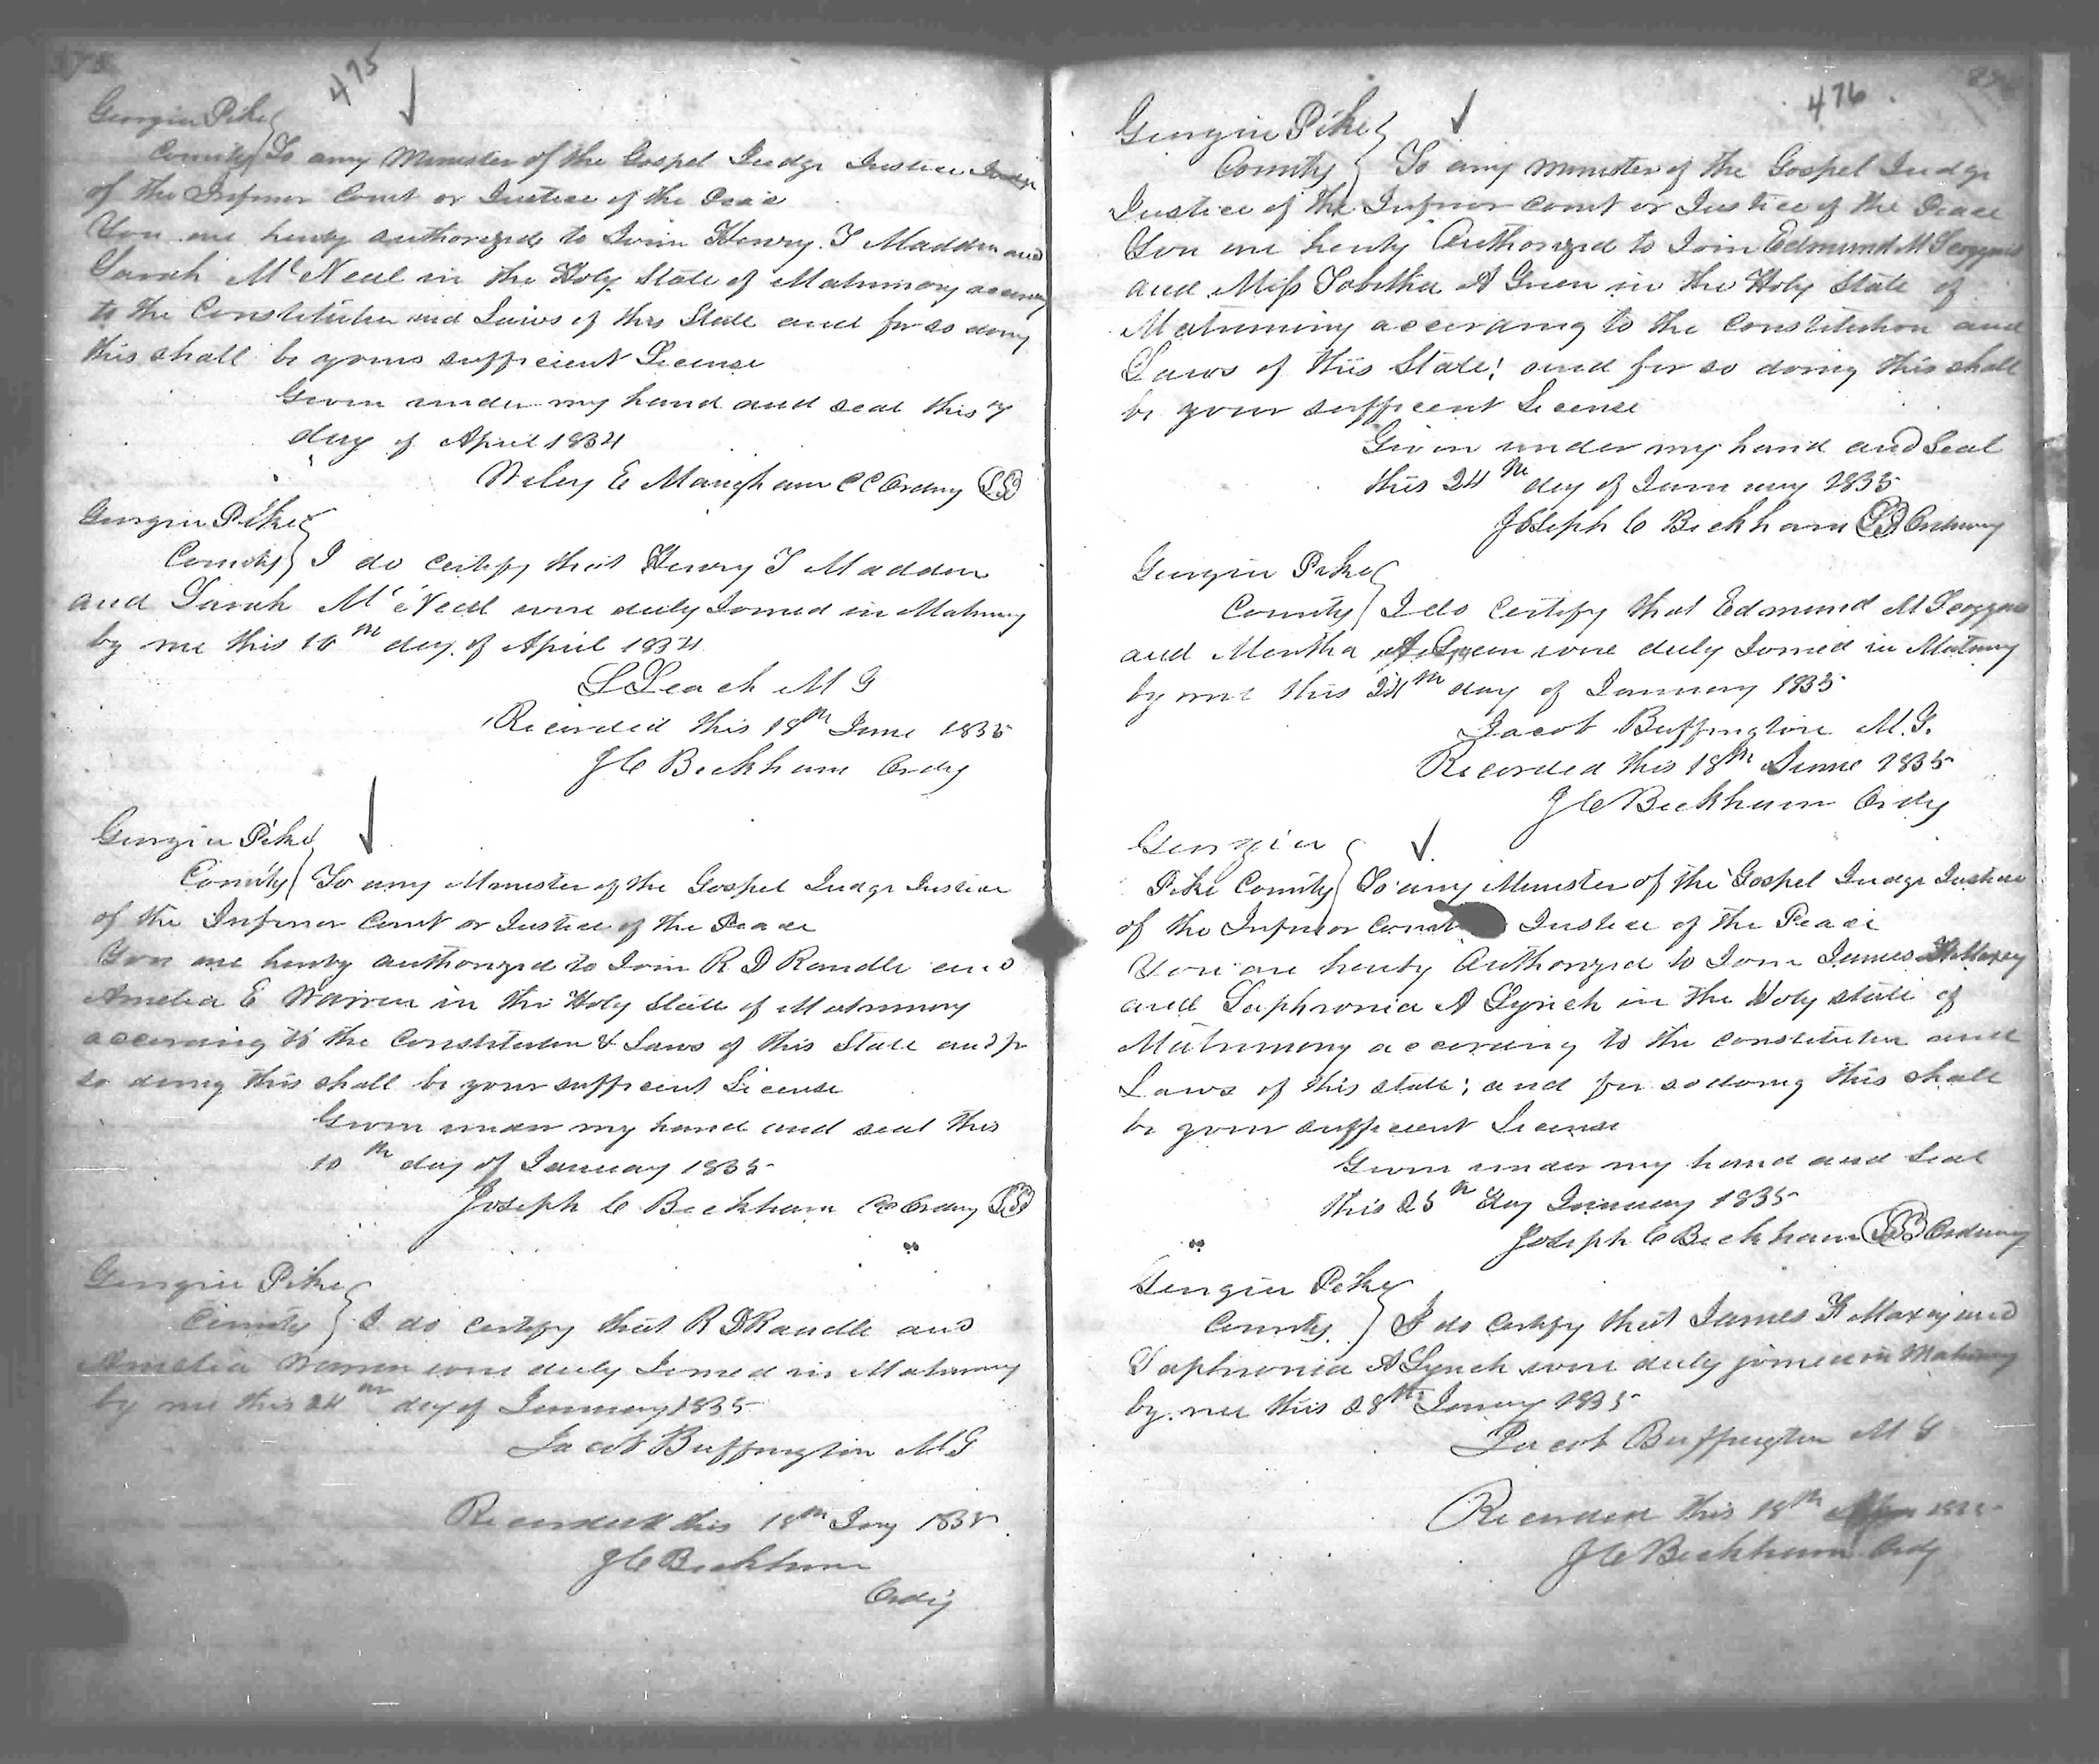 475
Georgia Pike
County } To any Minister of the Gospel Judge Justice
of the Inferior Court or Justice of the Peace
You are hereby authorized to Join Henry T Madden and
Sarah McNeel in the Holy State of Matrimony
to the Constitution and Laws of this State and for so doing
this shall be yours sufficient License
Given under my hand and seal this 7
day of April 1834
Wiley E Mangham CC Ordny LS
Georgia Pike
County } I do certify that Henry T Madden
and Sarah McNeel were duly Joined in Matrimony
by me this 10th day of April 1834
L Leach M G
Recorded this 18th June 1835
J C Beckham Ordy
Georgia Pike
County } To any Minister of the Gospel Judge Justice
of the Inferior Court or Justice of the Peace
You are hereby authorized to Join R D Randle and
Amelia E Warren in the Holy State of Matrimony
according to the Constitution & Laws of this State and fr
so doing this shall be your sufficient License
Given under my hand and seal this
10th day of January 1835
Joseph C Beckham CC Ordny LS
Georgia Pike
County } I do certify that R D Randle and
Amelia Warren were duly Joined in Matrimony
by me this 24th day of January 1835
Jacob Buffington M G
Recorded this 18th 1835
J C Beckham
Ordy
476
Georgia Pike
County } To any Minister of the Gospel Judge
Justice of the Inferior Court or Justice of the Peace
You are hereby Authorized to Join Edmund M
and Miss Tabitha A Green in the Holy State of
Matrimony according to the Constitution and
Laws of this State; and for so doing this shall
be your sufficient License
Given under my hand and Seal
this 24th day of January 1835
Joseph C Beckham LS Ordinary
Georgia Pike
County } I do Certify that Edmund M
and A Green were duly Joined in Matrimony
by me this 24th day of January 1835
Jacob Buffington M.G.
Recorded this 18th June 1835
J C Beckham Ordy
Georgia
Pike County } To any Minister of the Gospel Judge Justice
of the Inferior Court Justice of the Peace
You are hereby Authorized to Join James H Maxey
and Saphronia A Lynch in the Holy state of
Matrimony according to the constitution and
Laws of this state; and for so doing this shall
be your sufficient License
Given under my hand and Seal
this 25th day January 1835
Joseph C Beckham LS Ordinary
Georgia Pike
County } I do Certify that James H Maxey and
Saphronia A Lynch were duly joined in Matrimony
by me this 28th 1835
Jacob Buffington M G
Recorded this 18th
J C Beckham Ordy